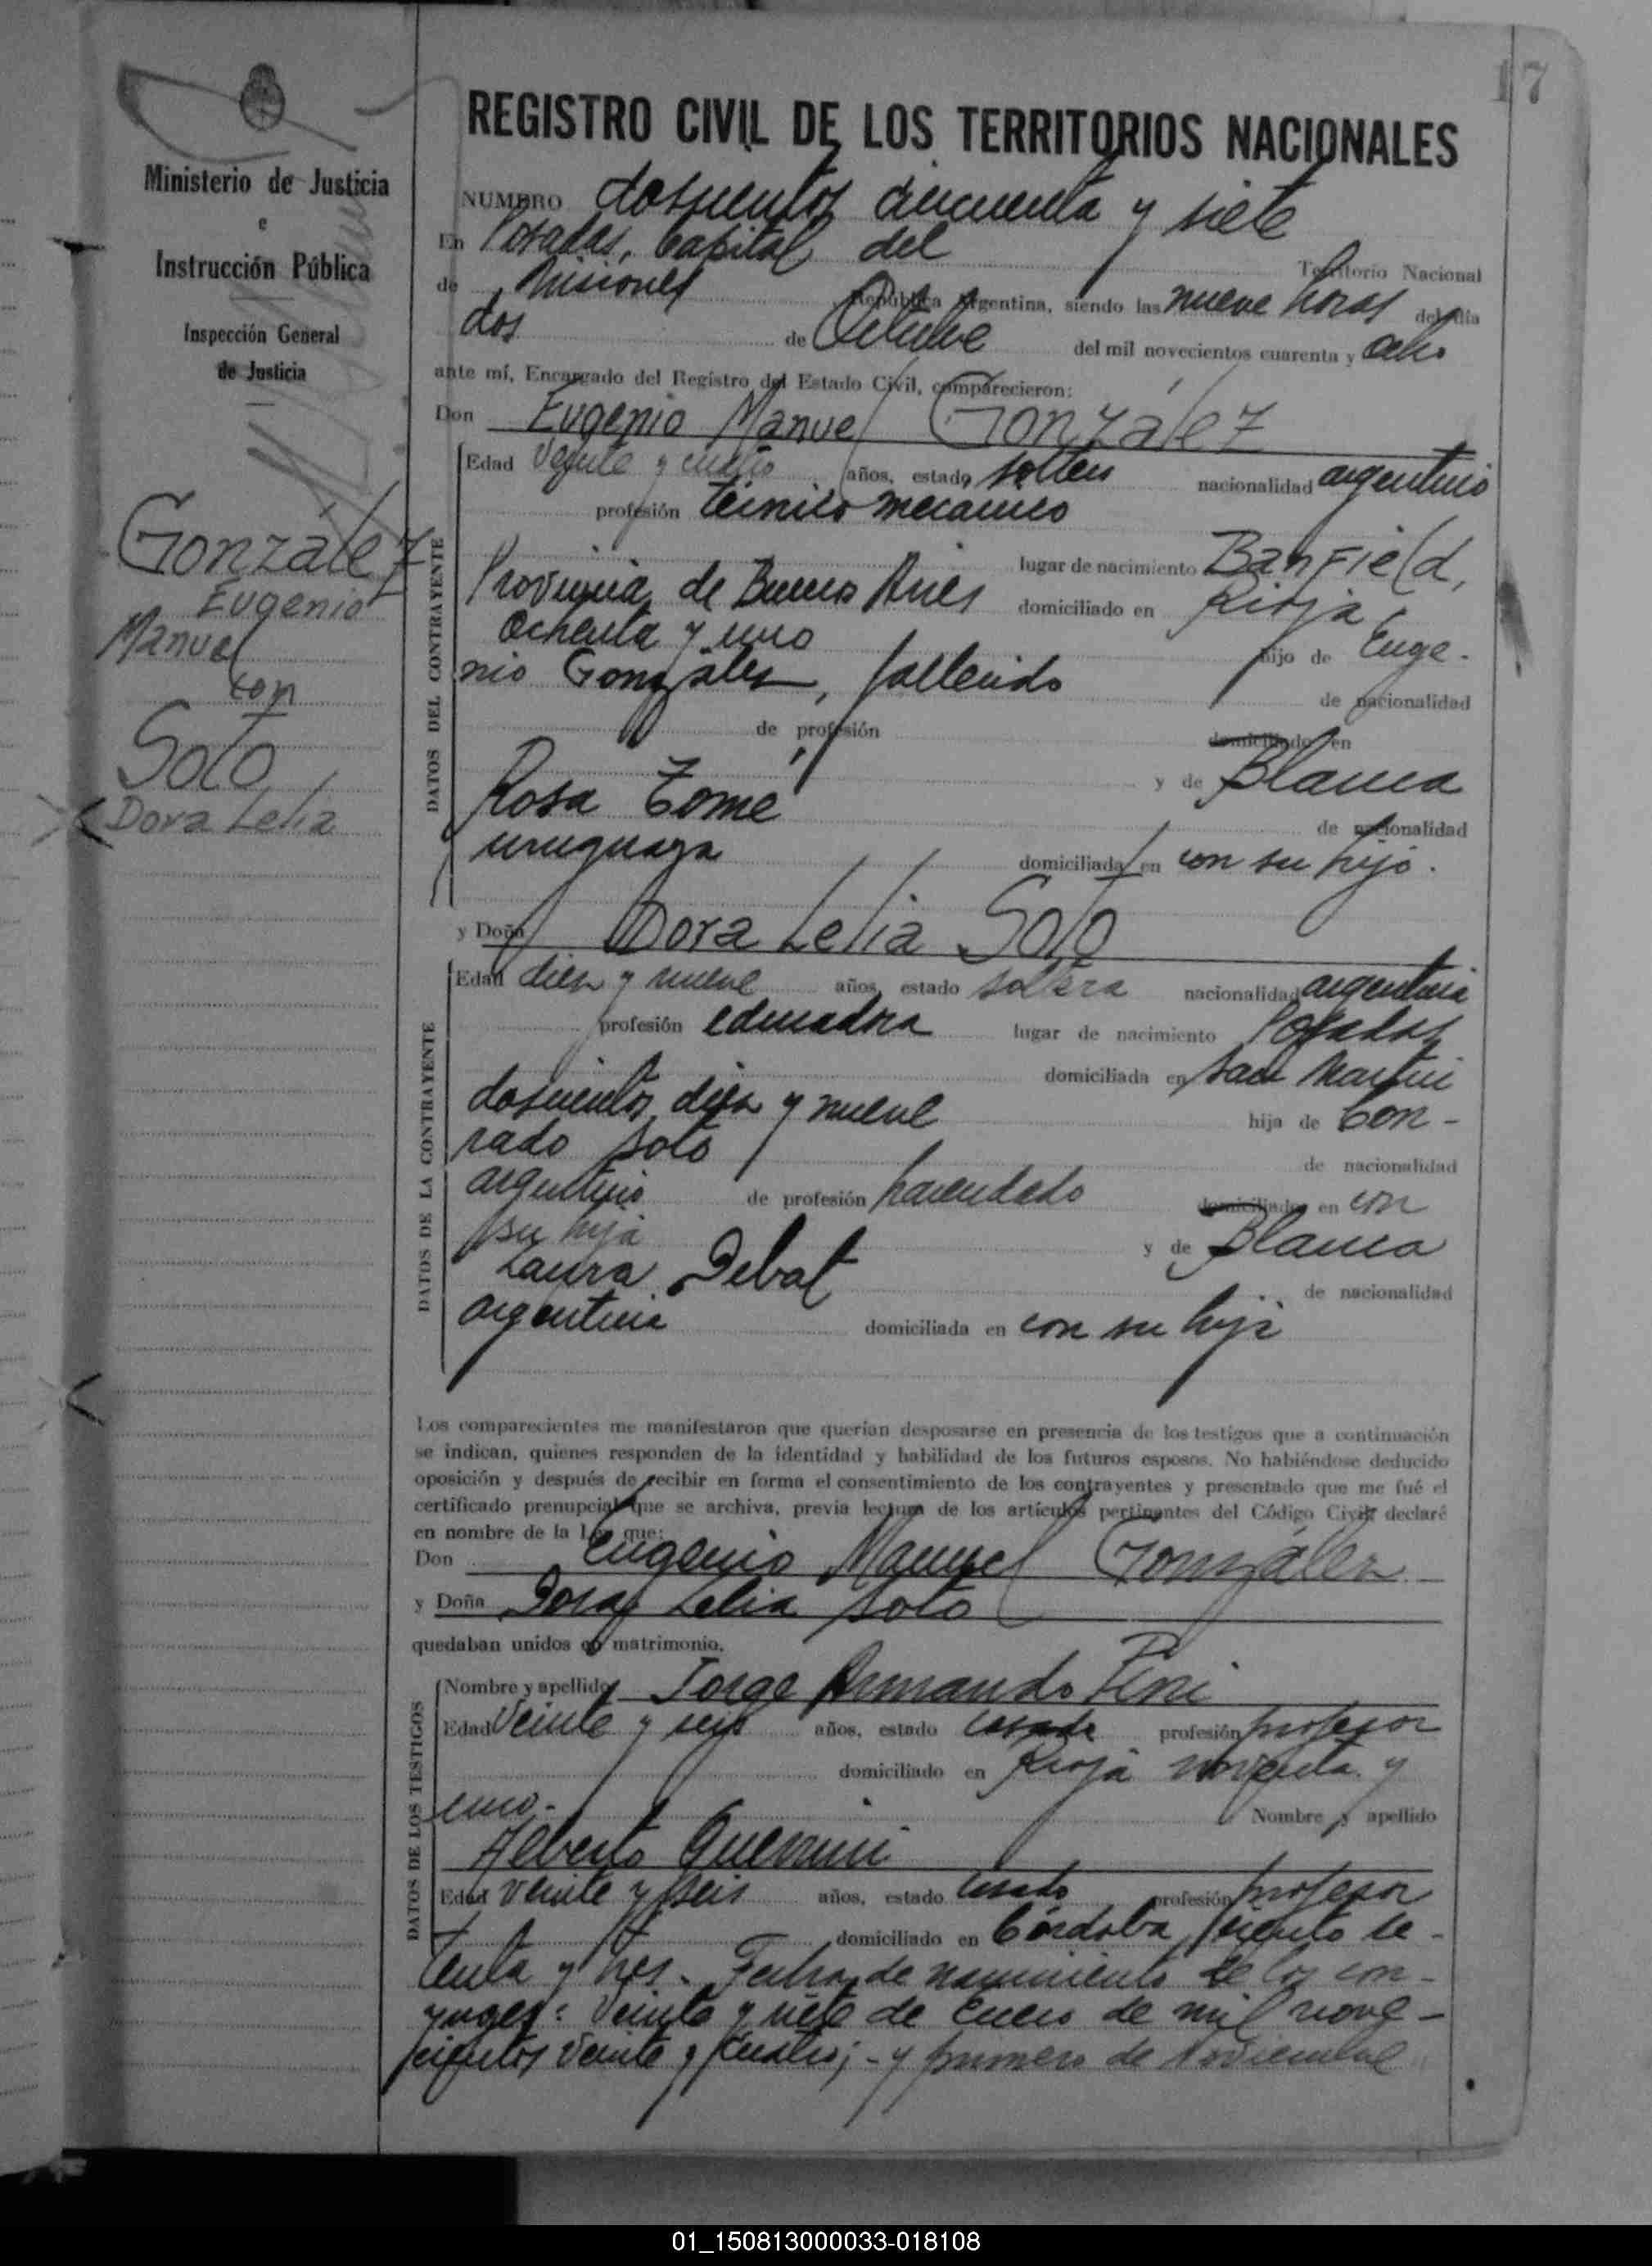 17
Ministerio de Justicia
e
Instrucción Pública
Inspección General
de Justicia
González
Eugenio
Manuel
con
Soto
Dora Lelia
REGISTRO CIVIL DE LOS TERRITORIOS NACIONALES
NUMERO doscientos cincuenta y siete
En Posadas, Capital del Territorio Nacional
de Misiones República Argentina, siendo las nueve horas del día
dos de Octubre del mil novecientos cuarenta y ocho
ante mí, Encargado del Registro del Estado Civil, comparecieron:
Don Eugenio Manuel González
DATOS DEL CONTRAYENTE
Edad veinte y cuatro años, estado soltero nacionalidad argentino
profesión técnico mecánico
lugar de nacimiento Banfield,
Provincia de Buenos Aires domiciliado en Rioja
ochenta y uno hijo de Euge-
nio González, fallecido de nacionalidad
de profesión domiciliado en
y de Blanca
Rosa Tomé de nacionalidad
uruguaya domiciliada en con su hijo.
y Doña Dora Lelia Soto
DATOS DE LA CONTRAYENTE
Edad diez y nueve años, estado soltera nacionalidad argentina
profesión educadora lugar de nacimiento Posadas
domiciliada en San Martin
doscientos diez y nueve hija de Con-
rado Soto de nacionalidad
argentino de profesión hacendado domiciliado en con
su hija y de Blanca
Laura Debat de nacionalidad
argentina domiciliada en con su hija
Los comparecientes me manifestaron que querían desposarse en presencia de los testigos que a continuación
se indican, quienes responden de la identidad y habilidad de los futuros esposos. No habiéndose deducido
oposición y después de recibir en forma el consentimiento de los contrayentes y presentado que me fué el
certificado prenupcial que se archiva, previa lectura de los artículos pertinentes del Código Civil declaré
en nombre de la Ley que:
Don Eugenio Manuel González
y Doña Dora Lelia Soto
quedaban unidos en matrimonio.
DATOS DE LOS TESTIGOS
Nombre y apellido Jorge Armando
Edad veinte y seis años, estado casado profesión profesor
domiciliado en Rioja noventa y
uno.- Nombre y apellido
Alberto Guerrini
Edad veinte y seis años, estado casado profesión profesor
domiciliado en Córdoba ciento se-
tenta y tres. Fecha de nacimiento de los con-
yuges: veinte y siete de Enero de mil nove-
cientos veinte y cuatro;- y primero de Noviembre
01_150813000033-018108